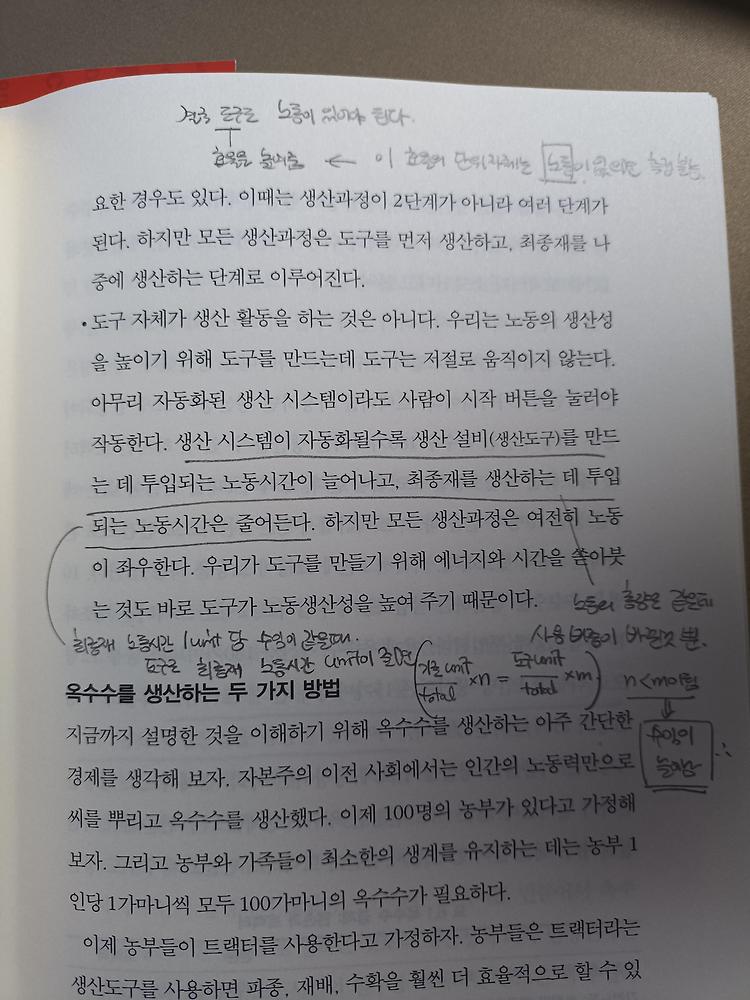 결국 도구로 노동이 있어야 된다.
효율을 높여줌 ← 이 효율의 단위자체는 노동이 없으면 측정 불능
요한 경우도 있다. 이때는 생산과정이 2단계가 아니라 여러 단계가
된다. 하지만 모든 생산과정은 도구를 먼저 생산하고, 최종재를 나
중에 생산하는 단계로 이루어진다.
• 도구 자체가 생산 활동을 하는 것은 아니다. 우리는 노동의 생산성
을 높이기 위해 도구를 만드는데 도구는 저절로 움직이지 않는다.
아무리 자동화된 생산 시스템이라도 사람이 시작 버튼을 눌러야
작동한다. 생산 시스템이 자동화될수록 생산 설비(생산도구)를 만드
는 데 투입되는 노동시간이 늘어나고, 최종재를 생산하는 데 투입
되는 노동시간은 줄어든다. 하지만 모든 생산과정은 여전히 노동
이 좌우한다. 우리가 도구를 만들기 위해 에너지와 시간을 쏟아붓
는 것도 바로 도구가 노동생산성을 높여 주기 때문이다.
노동의 총량은 같은데
사용 비중이 바뀐것 뿐.
최종재 노동시간 1unit 당 수익이 같을때.
도구로 최종재 노동시간 unit이 줄면
(기존unit/total × n = 도구unit/total × m)
n<m이됨
⇓
수익이
늘어남
∴
옥수수를 생산하는 두 가지 방법
지금까지 설명한 것을 이해하기 위해 옥수수를 생산하는 아주 간단한
경제를 생각해 보자. 자본주의 이전 사회에서는 인간의 노동력만으로
씨를 뿌리고 옥수수를 생산했다. 이제 100명의 농부가 있다고 가정해
보자. 그리고 농부와 가족들이 최소한의 생계를 유지하는 데는 농부 1
인당 1가마니씩 모두 100가마니의 옥수수가 필요하다.
이제 농부들이 트랙터를 사용한다고 가정하자. 농부들은 트랙터라는
생산도구를 사용하면 파종, 재배, 수확을 훨씬 더 효율적으로 할 수 있